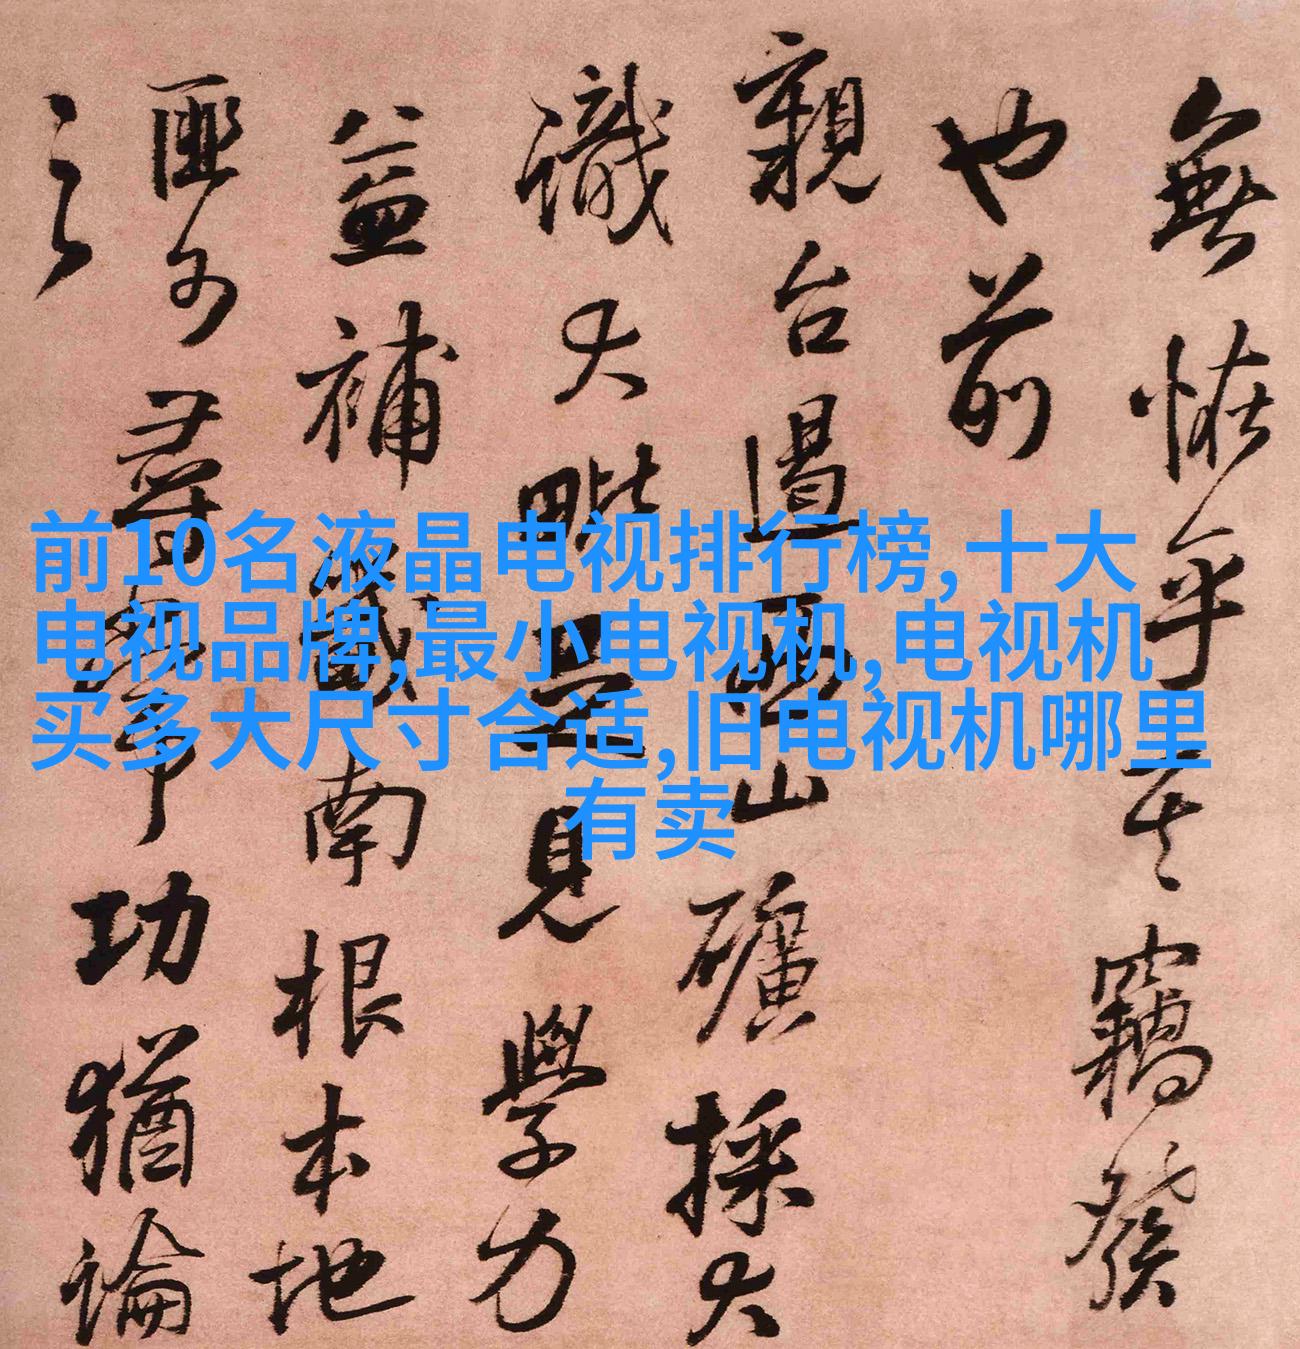 無恠乎其竊發
也前
親台山礦採大
識大見學力
益補南根本地
匪功猶論
之
前10名液晶电视排行榜,十大
电视品牌,最小电视机,电视机
买多大尺寸合适,旧电视机哪里
有卖